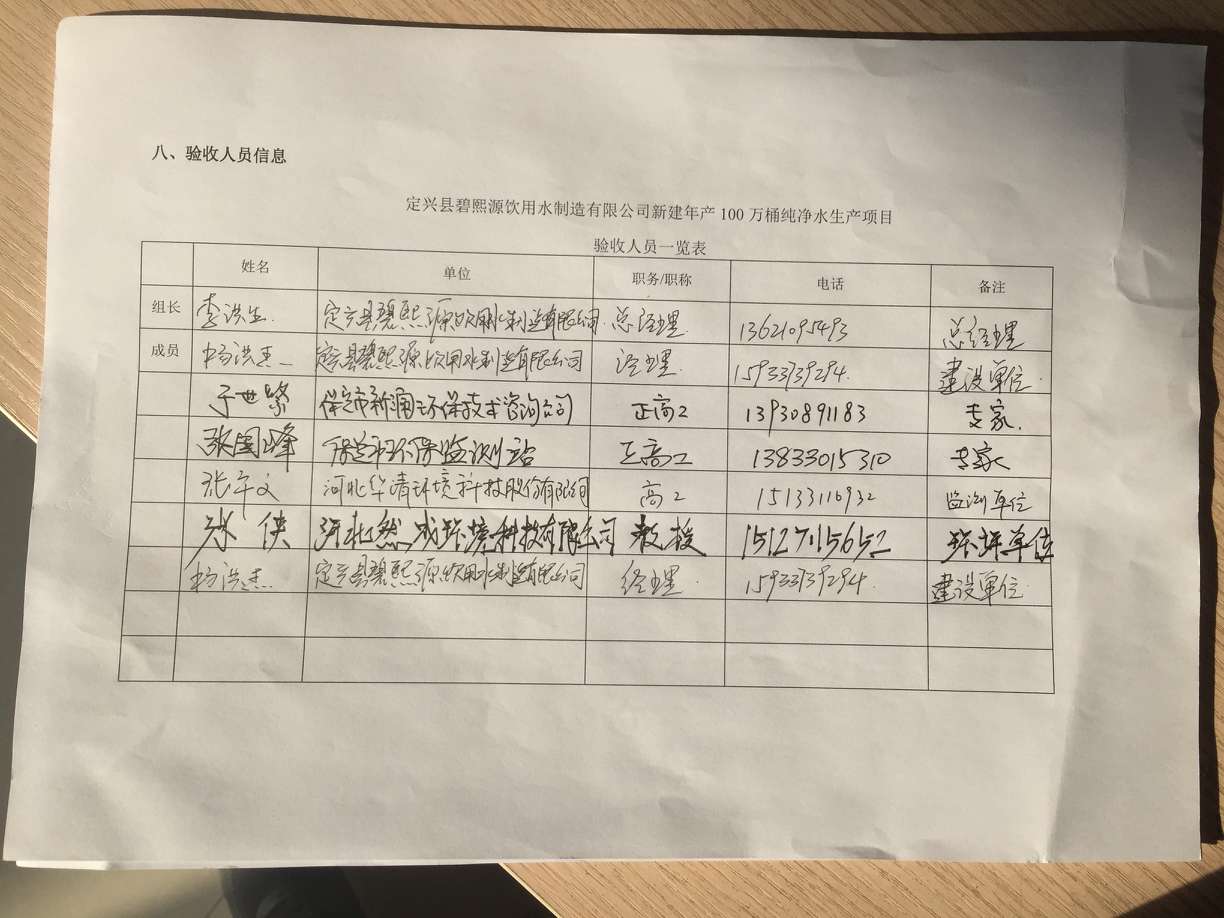 八、验收人员信息
定兴县碧熙源饮用水制造有限公司新建年产 100 万桶纯净水生产项目
验收人员一览表
姓名 单位 职务/职称 电话 备注
组长 李洪生 定兴县碧熙源饮用水制造有限公司 总经理 13621095493 总经理
成员 杨洪杰 定兴县碧熙源饮用水制造有限公司 经理 15933739294 建设单位
于世繁 保定市新澜环保技术咨询公司 正高工 13930891183 专家
张国峰 保定市环保监测站 正高工 13833015310 专家
张军文 河北华清环境科技股份有限公司 高工 15133116932 监测单位
侠 河北然成环境科技有限公司 教授 1512715652 环评单位
杨洪杰 定兴县碧熙源饮用水制造有限公司 经理 15933739294 建设单位